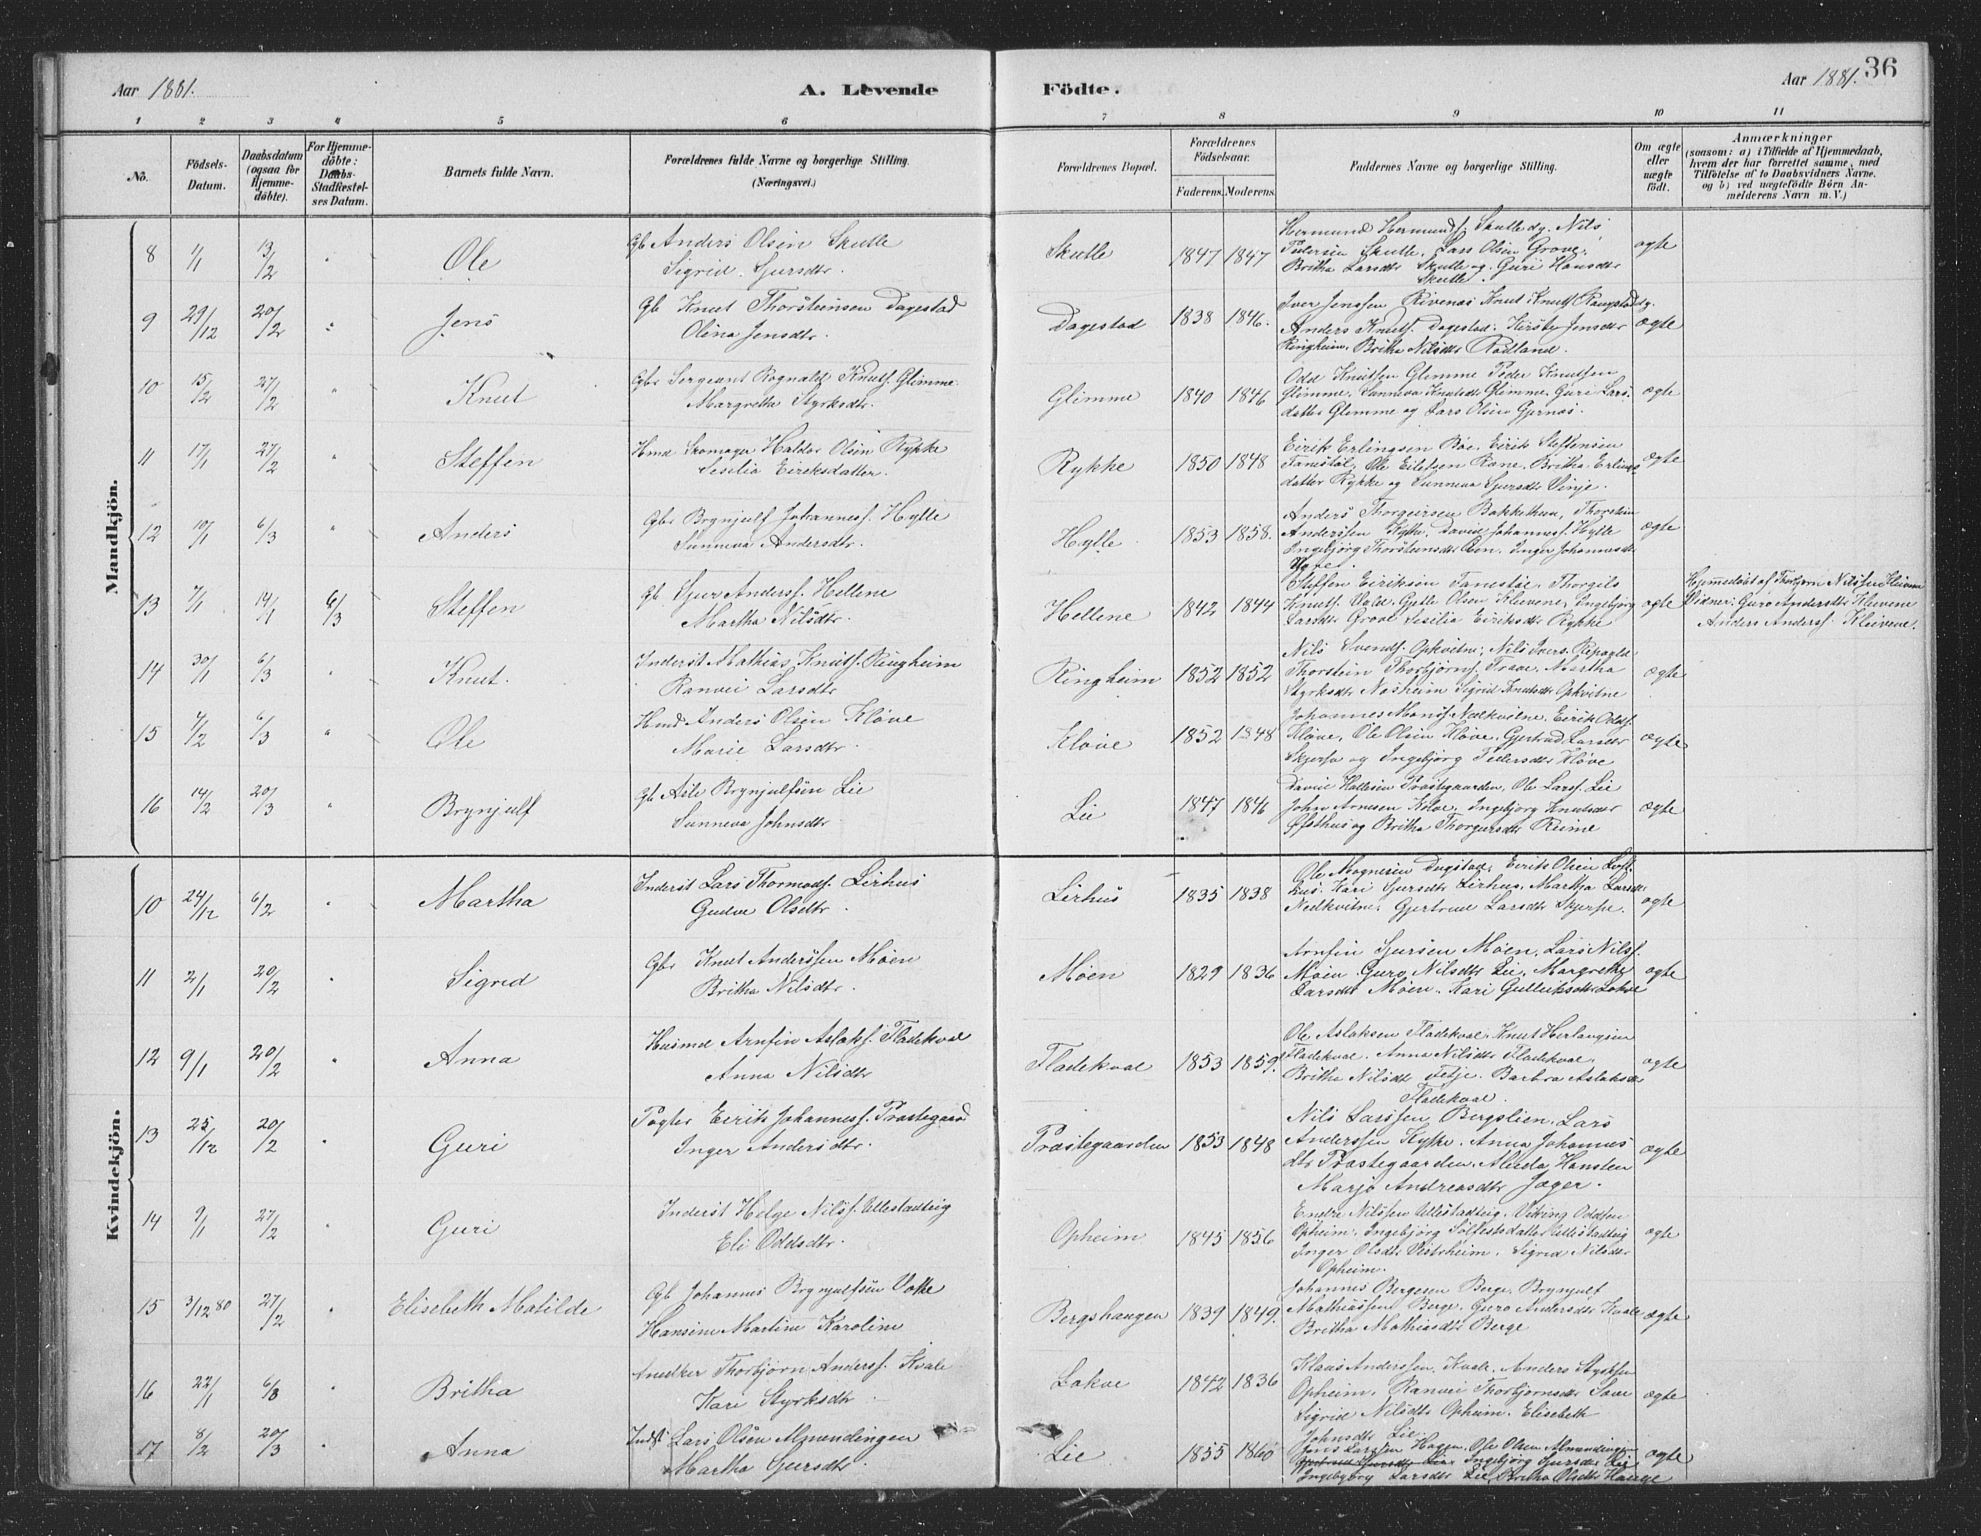 Aar 1881.
A. Levende
Födte.
Aar 1881.
36
1 2 3 4 5 6 7 8 9 10 11
No.
Födsels-
Datum.
Daabsdatum
(ogsaa for
Hjemme-
döbte).
For Hjemme-
döbte:
Daabs-
Stadfæstel-
ses Datum.
Barnets fulde Navn.
Forældrenes fulde Navne og borgerlige Stilling.
(Næringsvei.)
Forældrenes Bopæl.
Forældrenes
Födselsaar.
Faderens. Moderens.
Faddernes Navne og borgerlige Stilling.
Om ægte
eller
uægte
födt.
Anmærkninger
(saasom: a) i Tilfælde af Hjemmedaab,
hvem der har forrettet samme, med
Tilföielse af to Daabsvidners Navne.
og b) ved uægtefödte Börn An-
melderens Navn m. V.)
Mandkjön.
8 1/1 13/2 " Ole
Gb Anders Olsen Skutle
Sigrid Sjursdtr.
Skutle 1847 1847
Hermund Hermundss. Skutle og. Nils
Pedersen Skutle. Lars Olsen Grove.
Britha Larsdtr Skutle og. Guri Hansdtr
Skutle
ægte
9 29/12 20/2 " Jens
Gb Knut Thorsteinsen Dagestad
Olina Jensdtr.
Dagestad 1838 1846.
Iver Jenssen Rivenes Knut Knuts. Rangstad og.
Anders Knuts. Dagestad. Kirsty Jensdtr
Ringheim. Britha Nilsdtr Rödland.
ægte
10 15/2 27/2 " Knut
Gbr Sergeant Rognald Knuts. Glimme.
Margretha Styrksdtr.
Glimme 1840 1846
Odd Knutsen Glimme Peder Knutsen
Glimme. Sunneva Knutsdtr Glimme. Guri Lars-
datter Glimme og Lars Olsen Gjernes.
ægte
11 17/1 27/2 " Steffen
Hmd Skomager Haldor Olsen Rykke
Sesilia Eiriksdatter.
Rykke 1850 1848
Eirik Erlingsen Böe. Eirik Steffensen
Fanestöl. Ole Eilefsen Rane. Britha Erlings
datter Rykke og Sunneva Sjursdtr Vinje.
ægte
12 10/1 6/3 " Anders
Gbr Brynjulf Johanness. Hylle
Sunneva Andersdtr.
Hylle 1853 1858.
Anders Thorgeirsen Bakkethun, Thorstein
Anderssen Kyte. David Johanness. Hylle
Ingebjörg Thorsteinsdtr Röen. Inger Johannesdtr
Hylle.
ægte
13 7/1 14/1 6/3 Steffen
Gb Sjur Anderss. Hellene
Martha Nilsdtr.
Hellene 1842 1844
Steffen Eiriksen Fanestöl. Thorgils
Knuts. Væle. Gjetle Olsen Kleivene, Ingebjörg
Larsdtr Grove Sesilia Eiriksdtr Rykke
ægte
Hjemmedöbt af Thorbjörn Nilssen Kleivene
Vidner: Guro Andersdtr Kleivene
Anders Anderss. Kleivene.
14 30/1 6/3 " Knut.
Inderst Mathias Knuts. Ringheim
Ranvei Larsdtr
Ringheim 1852 1852
Nils Svends. Opkvitne, Nils Ivers. Repogle
Thorstein Thorbjörns. Træe. Martha
Styrksdtr Nesheim Sigrid Knutsdtr Opkvitne
ægte
15 7/2 6/3 " Ole
Hmd Anders Olsen Klöve
Marie Larsdtr.
Klöve 1852 1848
Johannes Monss. Nedkvitne, Eirik Odds.
Klöve, Ole Olsen Klöve, Gjertrud Larsdtr
Skjerpe og Ingebjörg Pedersdtr Klöve
ægte
16 14/2 20/3 " Brynjulf
Gb Asle Brynjulfsen Lie
Sunneva Johnsdtr
Lie 1847 1846
David Hallesen Præstegaarden, Ole Larss. Lie
John Arnesen Kolve. Ingebjörg Knutsdtr
Ofsthus og Britha Thorgersdtr Reime
ægte
Kvindekjön.
10 24/12 6/2 " Martha
Inderst Lars Thormods. Lirhus
Gudve Olsdtr.
Lirhus 1835 1838
Ole Magnesen Dugstad, Eirik Olsen Loft-
hus. Kari Sjursdtr Lirhus. Martha Larsdtr
Nedkvitne. Gjertrud Larsdtr Skjerpe.
ægte
11 2/1 20/2 " Sigrid
Gbr Knut Anderssen Möen
Britha Nilsdtr.
Möen 1829 1836
Arnfin Sjursen Möen. Lars Nilss.
Möen Guro Nilsdtr Lie. Margretha
Larsdtr Möen. Kari Gulleiksdtr Lekve
ægte
12 9/1 20/2 " Anna
Husmd Arnfin Aslaks. Fladekval
Anna Nilsdtr
Fladekval 1853 1859.
Ole Aslaksen Fladekval Knut Herlaugsen
Fladekval. Anna Nilsdtr Fladekval.
Britha Nilsdtr Tetje. Barbra Aslaksdtr
Fladekval.
ægte
13 25/12 20/2 " Guri
Pagter Eirik Johanness. Præstegaard
Inger Andersdtr.
Præstegaarden 1853 1848
Nils Larssen Bergslien. Lars
Anderssen Kyte. Anna Johannes
dtr Præstegaarden. Alida Hansten
Marja Andreasdtr Jæger.
ægte
14 9/1 27/2 " Guri
Inderst Helge Nilss. Ullestadteig
Eli Oddsdtr.
Opheim 1845 1856
Endre Nilssen Ullestadteig. Viking Oddsen
Opheim. Ingebjörg Sölfestsdatter Ullestadteig
Inger Olsdtr Vestrheim. Sigrid Nilsdtr
Opheim.
ægte
15 3/12 80 27/2 " Elisebeth Matilde
Gb Johannes Brynjulfsen Vatle
Hansine Martine Karoline
Bergshaugen 1839 1849.
Johannes Bergesen Berge. Brynjulf
Mathiassen Berge. Guro Andersdtr Kvale
Britha Mathiasdtr Berge
ægte
16 22/1 6/3 " Britha
Snedker Thorbjörn Anderss. Kvale
Kari Styrksdtr
Lekve 1842 1836
Klaus Anderssen. Kvale. Anders Styrksen
Opheim. Ranvei Thorbjörnsdtr Saue
Sigrid Nilsdtr Opheim. Elisebeth
Johnsdtr Lie
ægte
17 8/2 20/3 " Anna
Indst Lars Olsen Almendingen
Martha Sjursdtr.
Lie 1855 1860
Jens Larssen Hagen. Ole Olsen Almendingen
Ingebjörg Sjursdtr Lie
Ingebjörg Larsdtr Lie. Britha Olsdtr Hauge
ægte